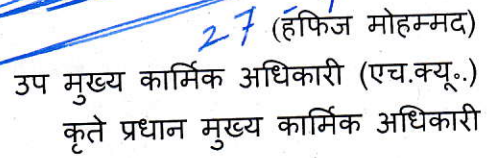 27 (हंफिज मोहम्मद)
उप मुख्य कार्मिक अधिकारी (एच.क्यू॰.)
कृते प्रधान मुख्य कार्मिक अधिकारी